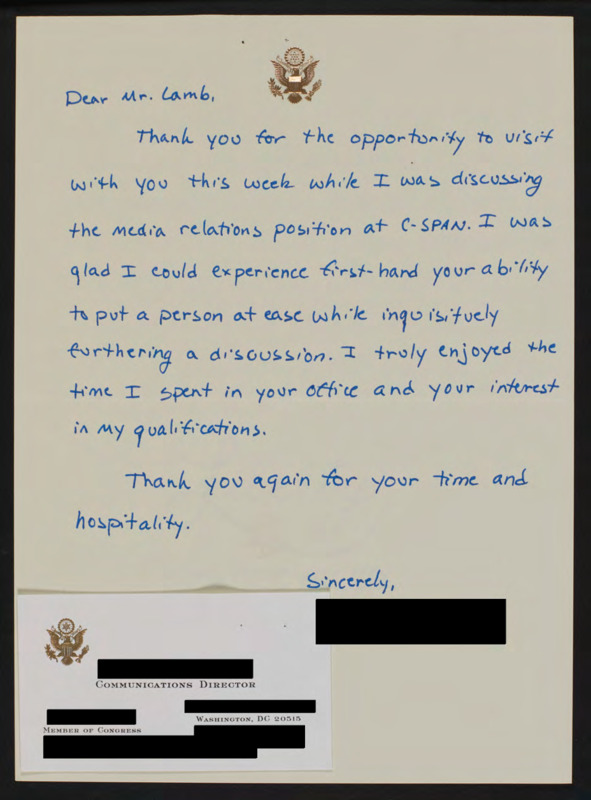 Dear Mr. Lamb,
Thank you for the opportunity to visit
with you this week while I was discussing
the media relations position at C-SPAN. I was
glad I could experience first-hand your ability
to put a person at ease while inquisituely
furthering a discussion. I truly enjoyed the
time I spent in your office and your interest
in my qualifications.
Thank you again for your time and
hospitality.
Sincerely,
COMMUNICATIONS DIRECTOR
WASHINGTON, DC 20515
MEMBER OF CONGRESS